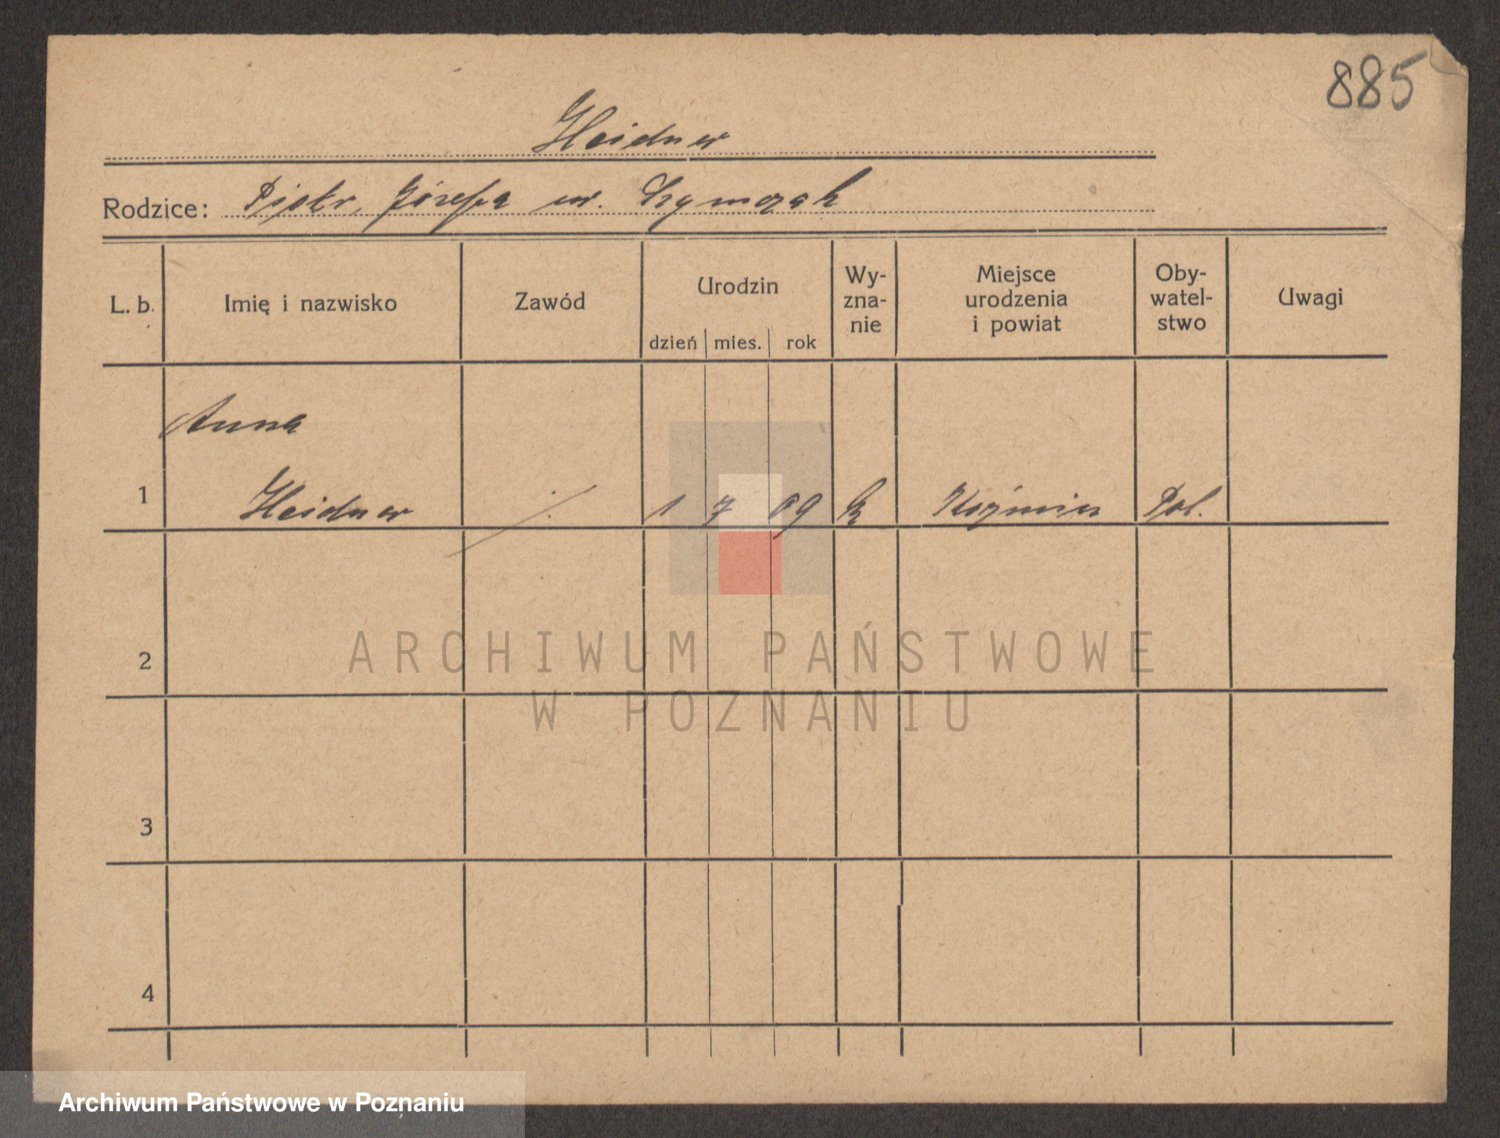 885
Heidner
Rodzice: Piotr, Józefa ur. Szymczak
L. b.
Imię i nazwisko
Zawód
Urodzin
dzień
mies.
rok
Wy-
zna-
nie
Miejsce
urodzenia
i powiat
Oby-
watel-
stwo
Uwagi
Anna
1 Heidner ./. 1 7 09 k Koźmin Pol.
2
3
4
ARCHIWUM PAŃSTWOWE
W POZNANIU
Archiwum Państwowe w Poznaniu